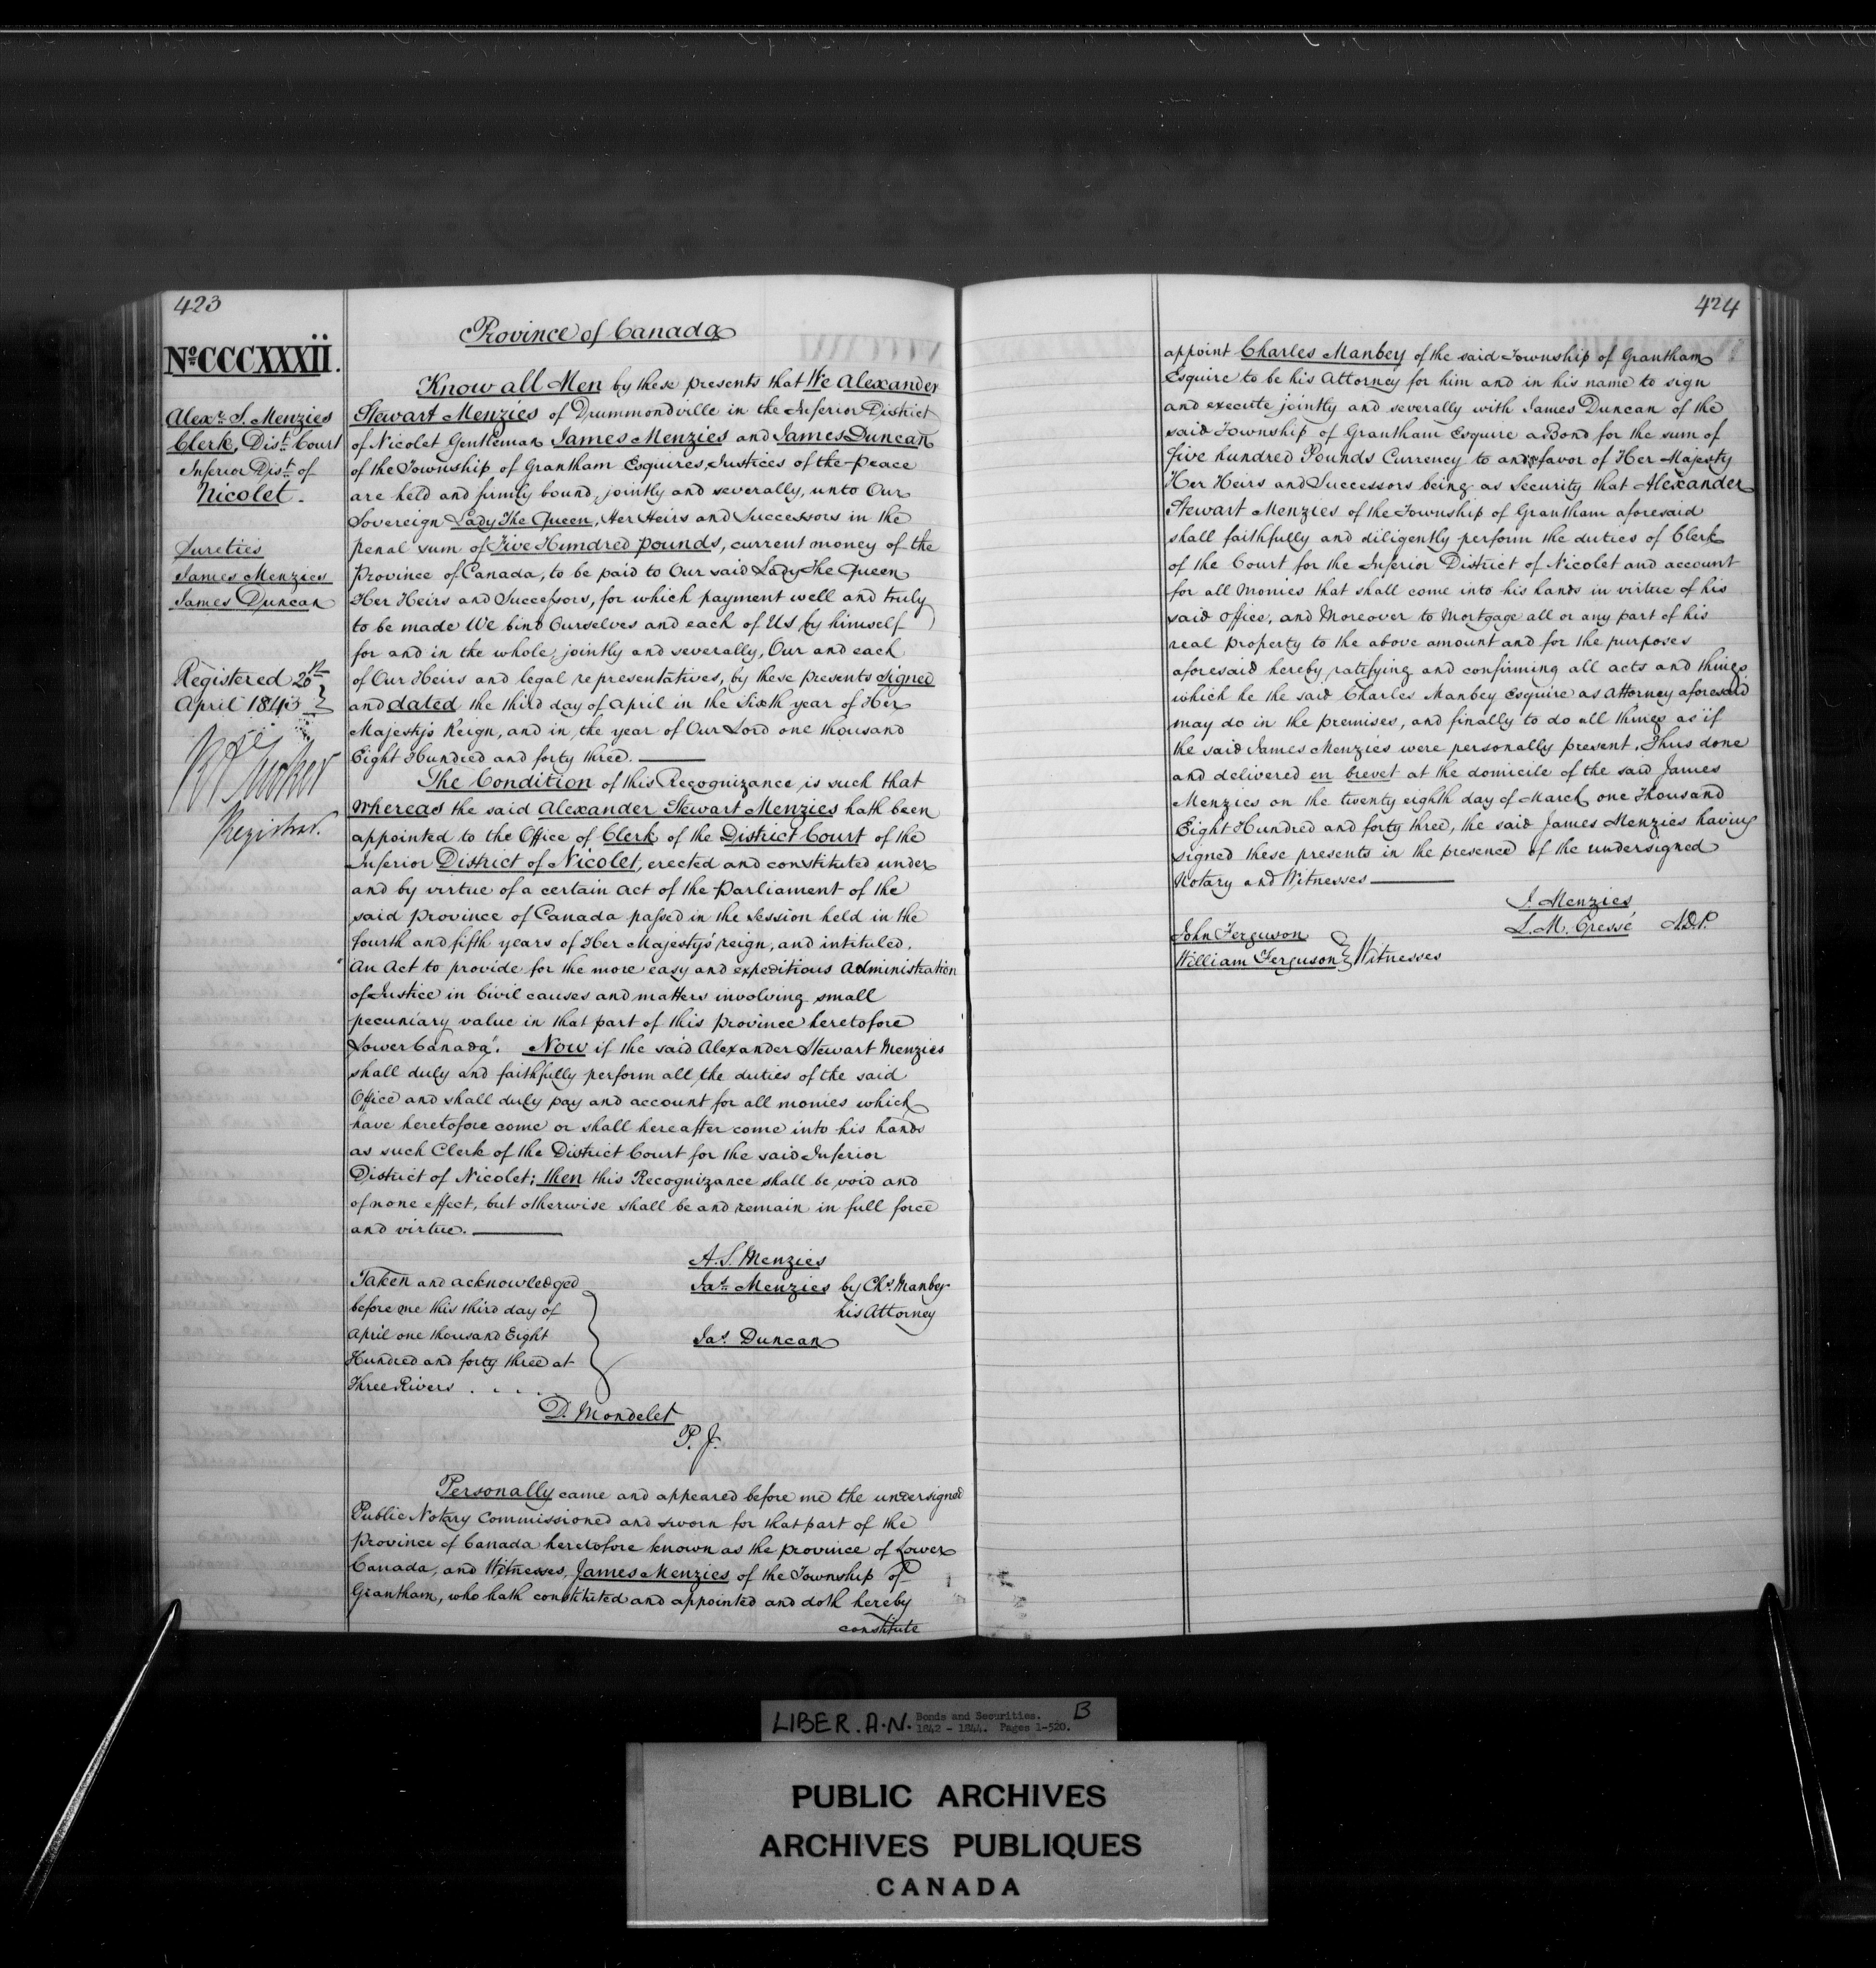 423
No. CCCXXXII.
Alexr. S. Menzies
Clerk, Dist. Court
Inferior Dist. of
Nicolet.
Sureties
James Menzies
James Duncan
Registered 20th
April 1843
Registrar.
Province of Canada
Know all Men by these presents that We Alexander
Stewart Menzies of Drummondville in the Inferior District
of Nicolet Gentleman James Menzies and James Duncan
of the Township of Grantham Esquires, Justices of the peace
are held and firmly bound, jointly and severally, unto Our
Sovereign Lady The Queen, Her Heirs and Successors in the
penal sum of Five Hundred pounds, current money of the
Province of Canada, to be paid to Our said Lady The Queen
Her Heirs and Successors, for which payment well and truly
to be made We bind Ourselves and each of Us by himself
for and in the whole, jointly and severally, Our and each
of Our Heirs and legal representatives, by these presents signed
and dated the third day of April in the Sixth year of Her
Majesty's Reign, and in, the year of Our Lord one thousand
Eight Hundred and forty three.
The Condition of this Recognizance is such that
Whereas the said Alexander Stewart Menzies hath been
appointed to the Office of Clerk of the District Court of the
Inferior District of Nicolet, erected and constituted under
and by virtue of a certain Act of the Parliament of the
said province of Canada passed in the Session held in the
fourth and fifth years of Her Majesty's reign, and intituled,
"An Act to provide for the more easy and expeditious administration
of Justice in Civil causes and matters involving small
pecuniary value in that part of this province heretofore
Lower Canada". Now if the said Alexander Stewart Menzies
shall duly and faithfully perform all the duties of the said
Office and shall duly pay and account for all monies which
have heretofore come or shall hereafter come into his hands
as such Clerk of the District Court for the said Inferior
District of Nicolet; then this Recognizance shall be void and
of none effect, but otherwise shall be and remain in full force
and virtue.
A. S. Menzies
Jas. Menzies by Chs. Manbey
his Attorney
Jas. Duncan
Taken and acknowledged
before me this third day of
April one thousand Eight
Hundred and forty three at
Three Rivers . . . .
D. Mondelet
P. J.
Personally came and appeared before me the undersigned
Public Notary Commissioned and sworn for that part of the
Province of Canada heretofore known as the province of Lower
Canada, and Witnesses, James Menzies of the Township of
Grantham, who hath constituted and appointed and doth hereby
constitute
424
appoint Charles Manbey of the said Township of Grantham
Esquire to be his Attorney for him and in his name to sign
and execute jointly and severally with James Duncan of the
said Township of Grantham Esquire a Bond for the sum of
five hundred Pounds Currency to and in favor of Her Majesty
Her Heirs and Successors being as Security that Alexander
Stewart Menzies of the Township of Grantham aforesaid
shall faithfully and diligently perform the duties of Clerk
of the Court for the Inferior District of Nicolet and account
for all Monies that shall come into his hands in virtue of his
said office, and Moreover to Mortgage all or any part of his
real property to the above amount and for the purposes
aforesaid hereby ratifying and confirming all acts and things
which he the said Charles Manbey Esquire as Attorney aforesaid
may do in the premises, and finally to do all things as if
the said James Menzies were personally present. Thus done
and delivered en brevet at the domicile of the said James
Menzies on the twenty eighth day of March one Thousand
Eight Hundred and forty three, the said James Menzies having
signed these presents in the presence of the undersigned
Notary and Witnesses
J. Menzies
L. M. Cressé N.P.
John Ferguson
William Ferguson } Witnesses
LIBER. A.N. Bonds and Securities. B
1842 - 1844. Pages 1-520.
PUBLIC ARCHIVES
ARCHIVES PUBLIQUES
CANADA